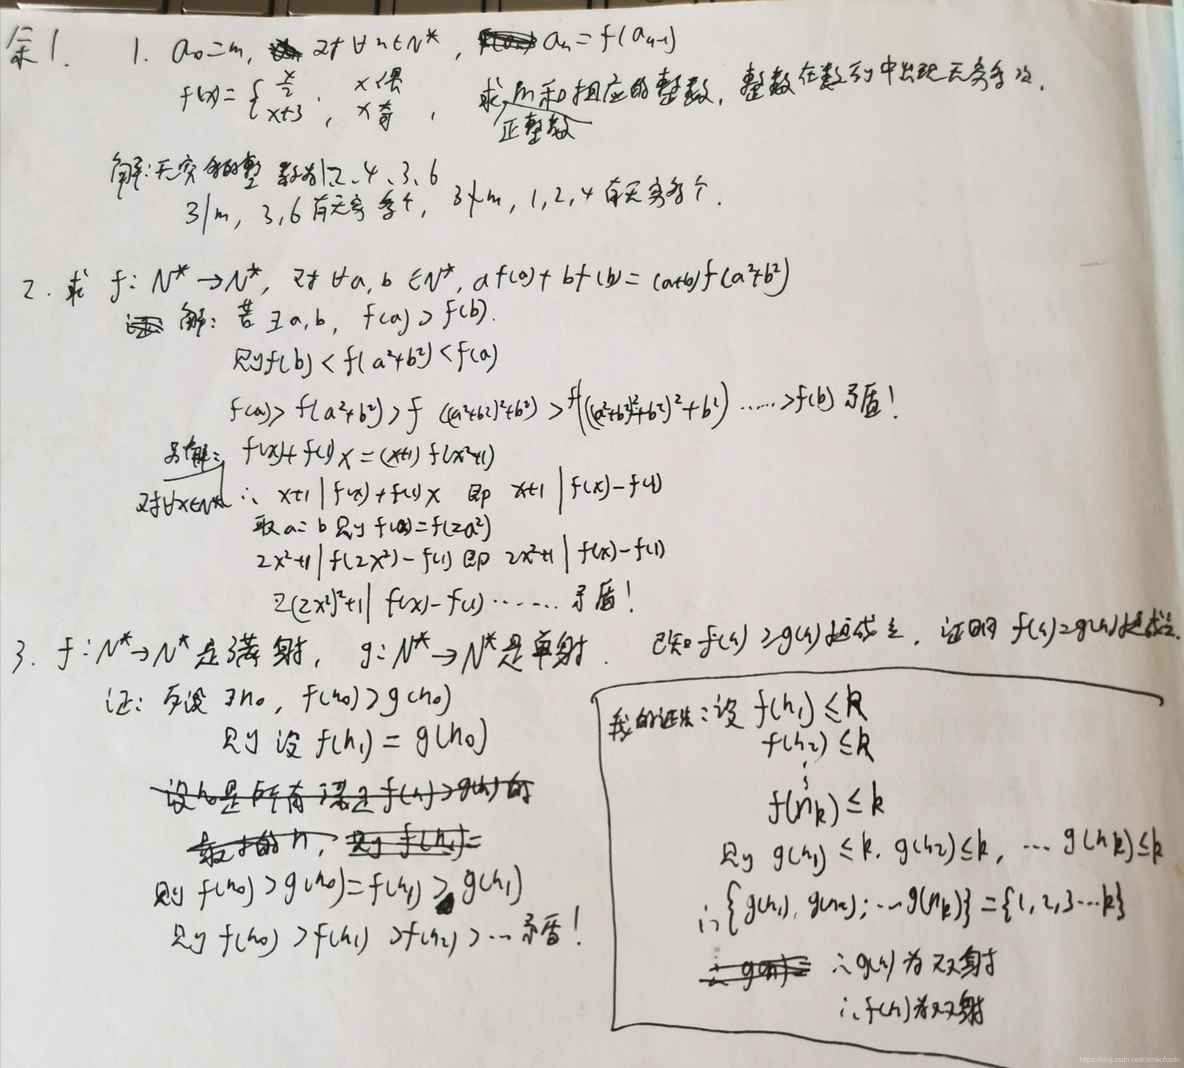 余1. 1. a₀=m, 对∀n∈N*, aₙ=f(aₙ₋₁)
f(x)={x/2, x偶
x+3, x奇, 求m和相应的整数, 整数在数列中出现无穷多次.
正整数
解:无穷多的整数为1、2、4、3、6
3|m, 3,6有无穷多个, 3∤m, 1,2,4有无穷多个.
2. 求 f: N*→N*, 对∀a,b∈N*, af(a)+bf(b)=(a+b)f(a²+b²)
解: 若∃a,b, f(a)>f(b).
则f(b)<f(a²+b²)<f(a)
f(a)>f(a²+b²)>f((a²+b²)²+b²)>f(((a²+b²)²+b²)²+b²)……>f(b) 矛盾!
另解: f(x)x+f(1)=(x+1)f(x²+1)
对∀x∈N* ∴ x+1|f(x)x+f(1) 即 x+1|f(x)-f(1)
取a=b 则f(a)=f(2a²)
2x²+1|f(2x²)-f(1) 即 2x²+1|f(x)-f(1)
2(2x²)²+1|f(x)-f(1)…… 矛盾!
3. f:N*→N*是满射, g:N*→N*是单射. 已知f(n)≥g(n)恒成立, 证明f(n)=g(n)恒成立.
证: 反设∃n₀, f(n₀)>g(n₀)
则设f(n₁)=g(n₀)
则f(n₀)>g(n₀)=f(n₁)≥g(n₁)
则f(n₀)>f(n₁)>f(n₂)>… 矛盾!
我的证法:设f(n₁)≤k
f(n₂)≤k
⋮
f(nₖ)≤k
则g(n₁)≤k, g(n₂)≤k, … g(nₖ)≤k
∴{g(n₁), g(n₂), …g(nₖ)}={1,2,3…k}
∴g(n)为双射
∴f(n)为双射